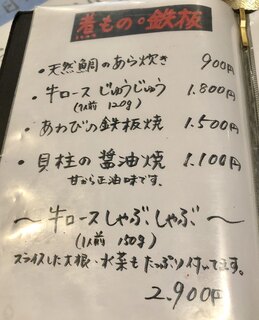 煮もの。鉄板
・天然鯛のあら炊き 900円
・牛ロースじゅうじゅう 1.800円
(1人前 120g)
・あわびの鉄板焼 1.500円
・貝柱の醤油焼 1.100円
甘から正油味です。
〜牛ロースしゃぶしゃぶ〜
(1人前 150g)
スライスした大根・水菜もたっぷり付いてます。
2.900円